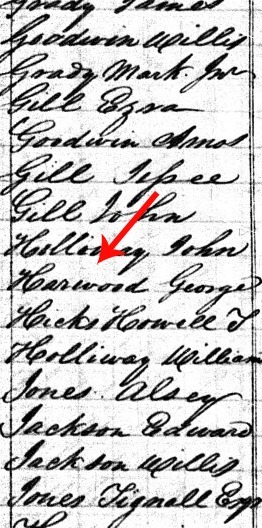 Grady James
Goodwin Willis
Grady Mark. Jnr
Gill Ezra
Goodwin Amos
Gill Jesse
Gill John
Holliway John
Harwood George
Hicks Howell T
Holliway William
Jones Alsey
Jackson Edward
Jackson Willis
Jones Tignall Esqr